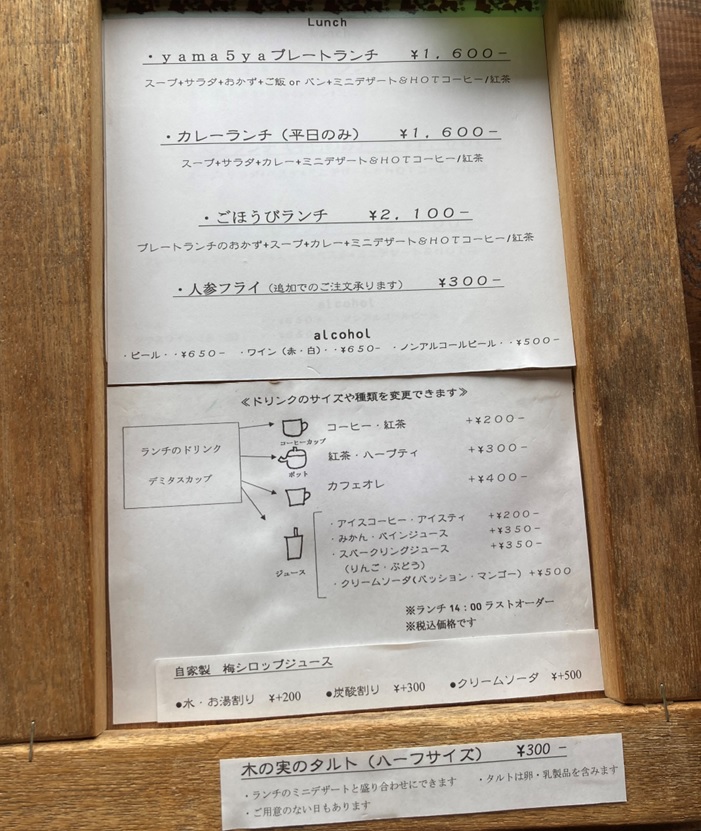 Lunch
・yama5yaプレートランチ ¥1,600−
スープ+サラダ+おかず+ご飯 or パン+ミニデザート&HOTコーヒー/紅茶
・カレーランチ（平日のみ） ¥1,600−
スープ+サラダ+カレー+ミニデザート&HOTコーヒー/紅茶
・ごほうびランチ ¥2,100−
プレートランチのおかず+スープ+カレー+ミニデザート&HOTコーヒー/紅茶
・人参フライ（追加でのご注文承ります） ¥300−
alcohol
・ビール・・¥650− ・ワイン（赤・白）・・¥650− ・ノンアルコールビール・・¥500−
≪ドリンクのサイズや種類を変更できます≫
ランチのドリンク
デミタスカップ
コーヒーカップ
コーヒー・紅茶 +¥200−
ポット
紅茶・ハーブティ +¥300−
カフェオレ +¥400−
ジュース
・アイスコーヒー・アイスティ +¥200−
・みかん・パインジュース +¥350−
・スパークリングジュース +¥350−
（りんご・ぶどう）
・クリームソーダ(パッション・マンゴー) +¥500
※ランチ 14：00 ラストオーダー
※税込価格です
自家製 梅シロップジュース
●水・お湯割り ¥+200 ●炭酸割り ¥+300 ●クリームソーダ ¥+500
木の実のタルト（ハーフサイズ） ¥300 −
・ランチのミニデザートと盛り合わせにできます ・タルトは卵・乳製品を含みます
・ご用意のない日もあります